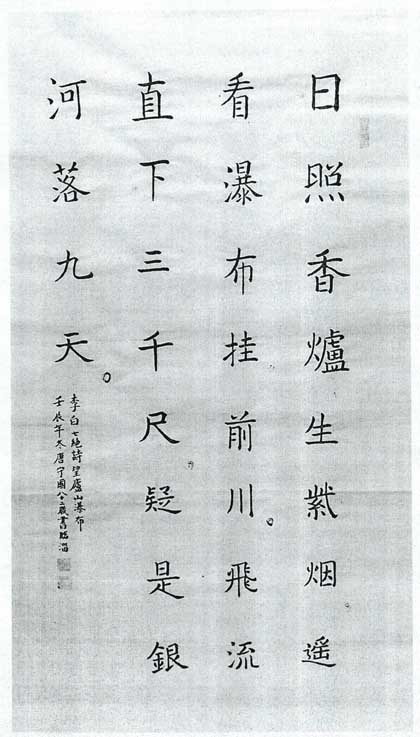 日照香爐生紫烟。遥
看瀑布挂前川。飛流
直下三千尺。疑是銀
河落九天。
李白七絶詩望廬山瀑布
壬辰年冬唐守國八二歲書臨淄